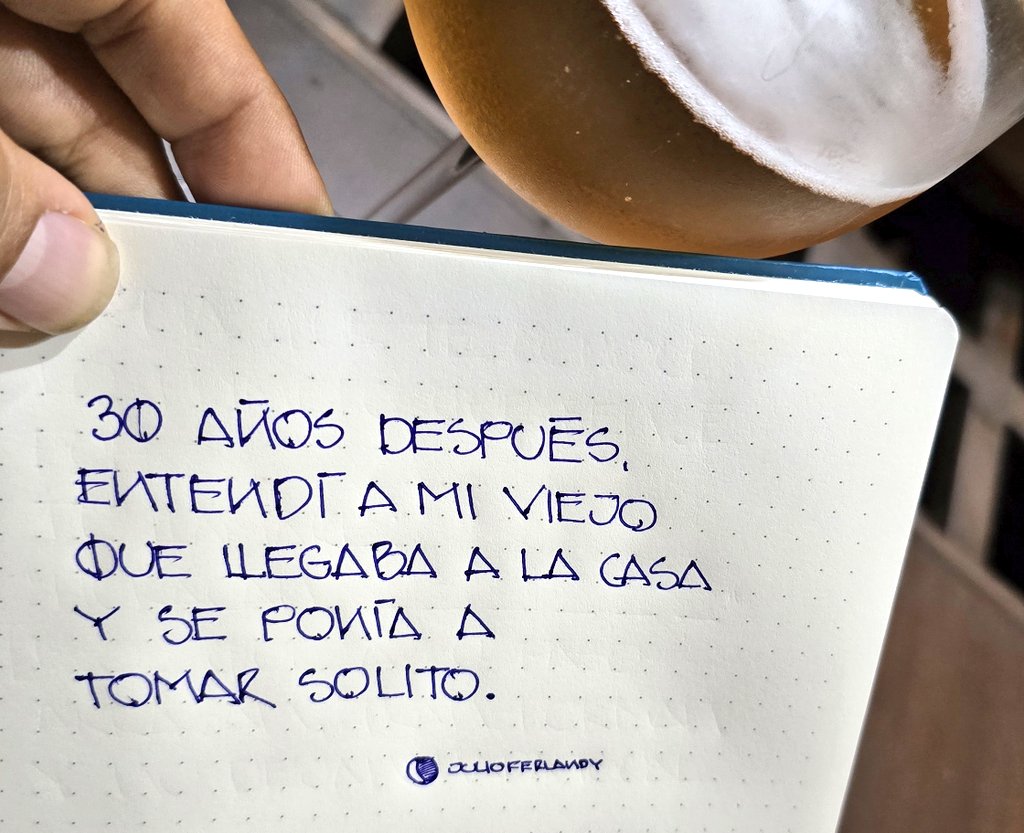 30 AÑOS DESPUÉS,
ENTENDÍ A MI VIEJO
QUE LLEGABA A LA CASA
Y SE PONÍA A
TOMAR SOLITO.
JULIOFERLANDY